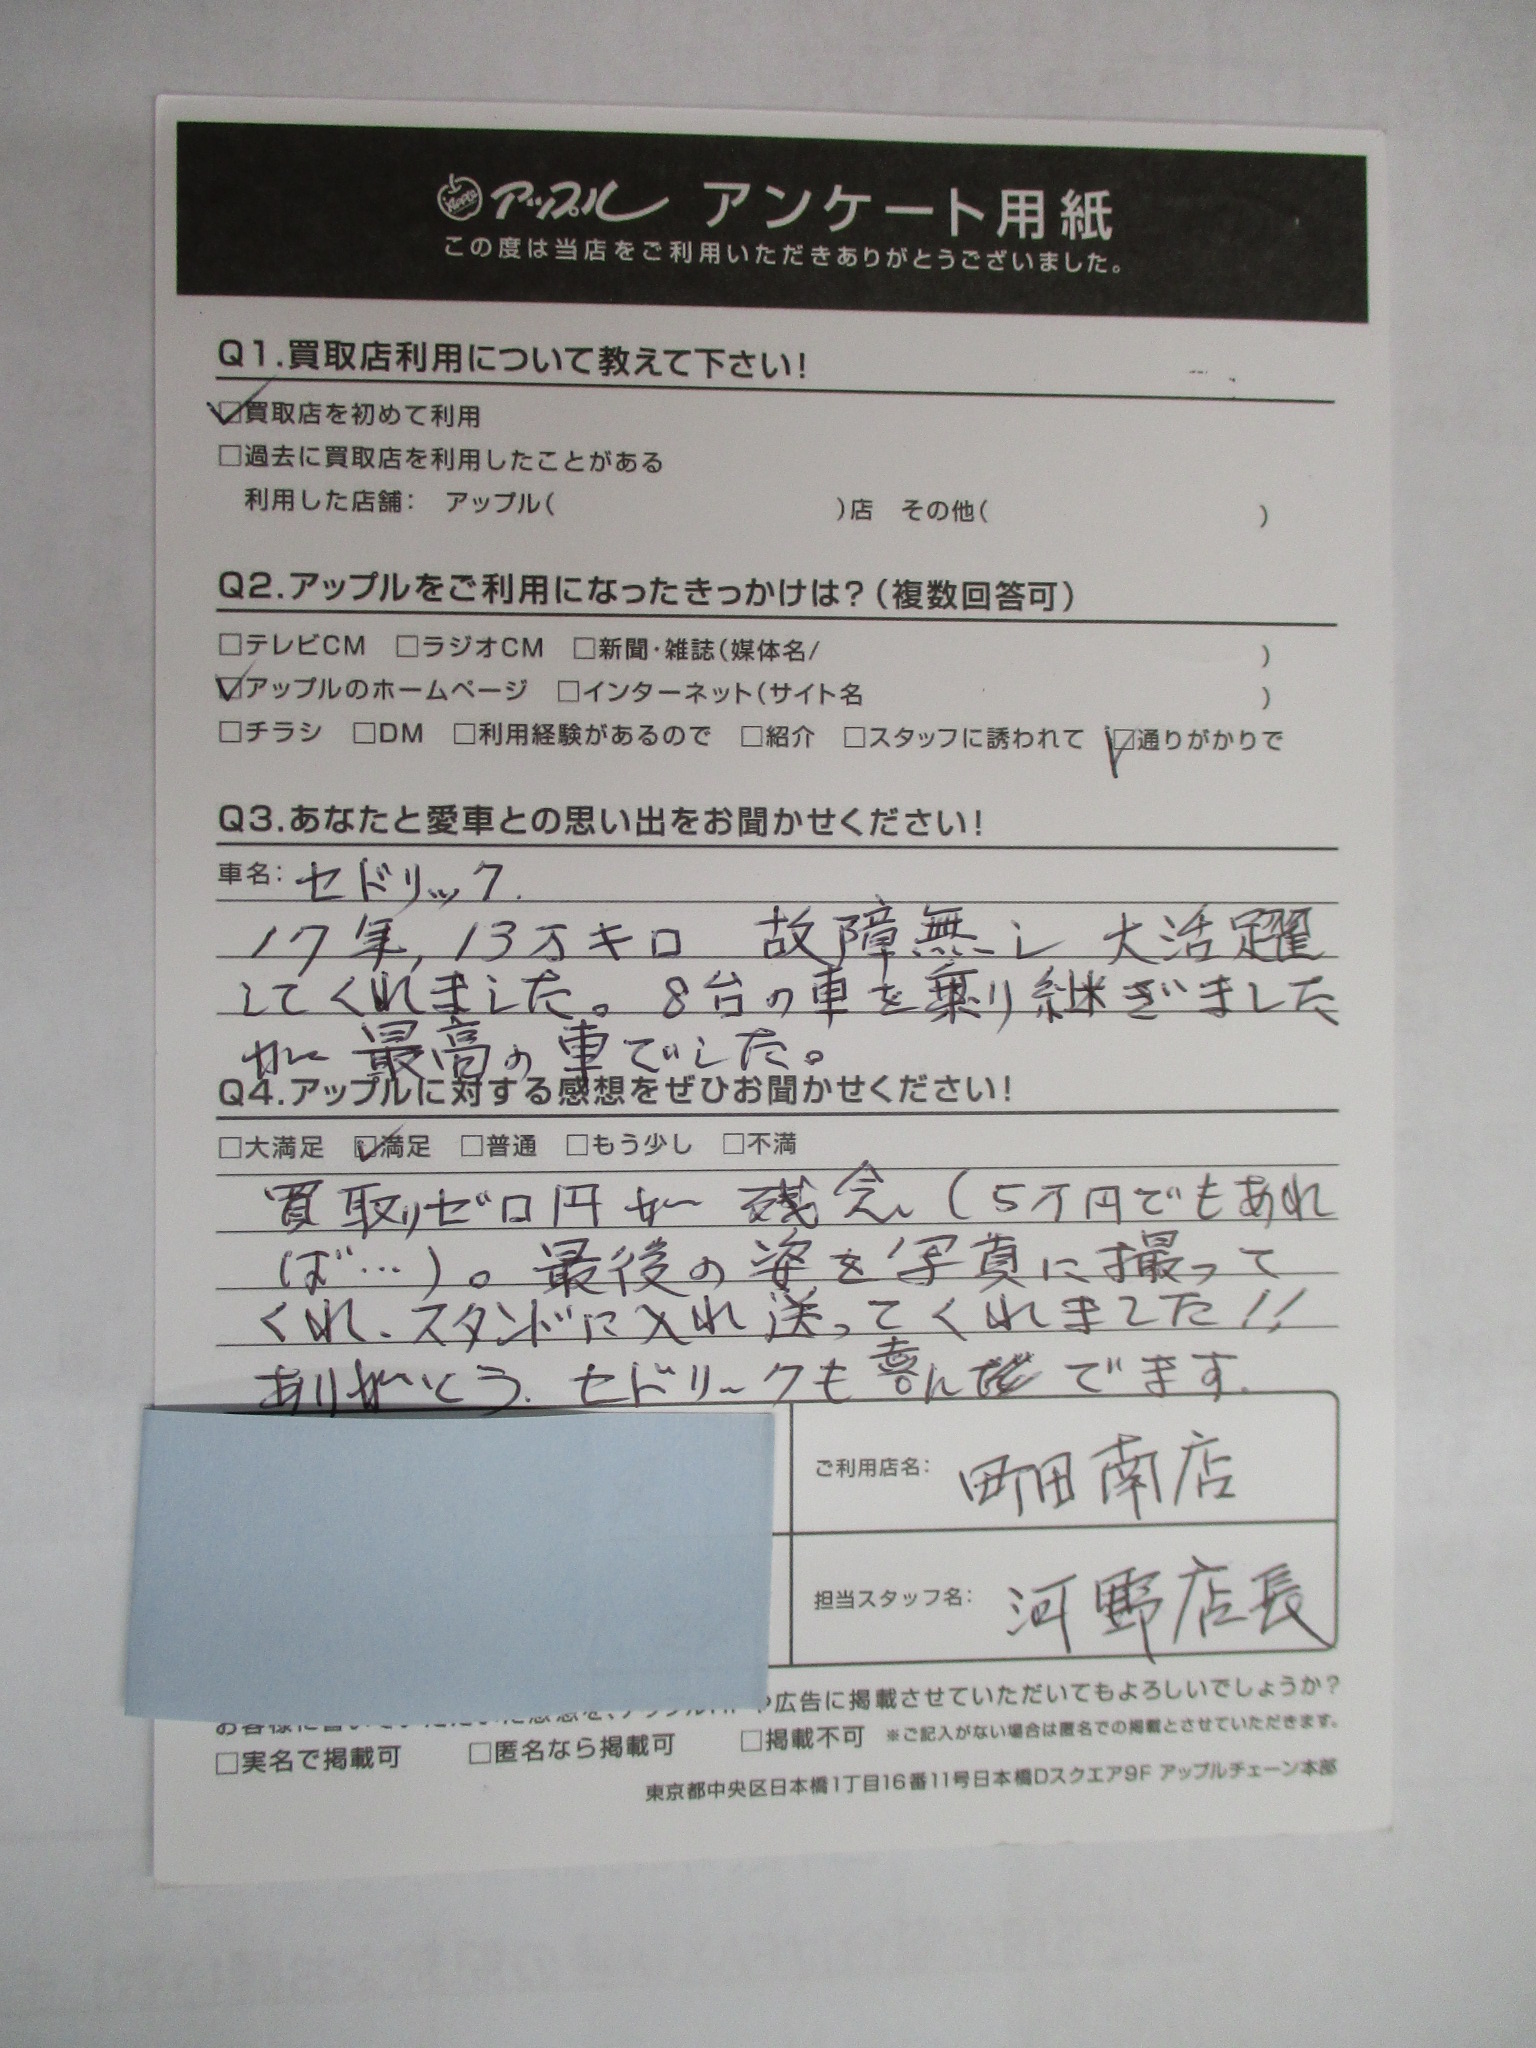 アップル アンケート用紙
この度は当店をご利用いただきありがとうございました。
Q1.買取店利用について教えて下さい!
☑買取店を初めて利用
□過去に買取店を利用したことがある
利用した店舗: アップル( )店 その他( )
Q2.アップルをご利用になったきっかけは?(複数回答可)
□テレビCM □ラジオCM □新聞・雑誌(媒体名/ )
☑アップルのホームページ □インターネット(サイト名 )
□チラシ □DM □利用経験があるので □紹介 □スタッフに誘われて ☑通りがかりで
Q3.あなたと愛車との思い出をお聞かせください!
車名: セドリック.
17年,13万キロ 故障無し 大活躍
してくれました。8台の車を乗り継ぎました
が 最高の車でした。
Q4.アップルに対する感想をぜひお聞かせください!
□大満足 ☑満足 □普通 □もう少し □不満
買取りゼロ円が 残念(5万円でもあれ
ば…)。最後の姿を写真に撮って
くれ、スタンドに入れ送ってくれました!!
ありがとう. セドリックも喜んでます.
ご利用店名: 町田南店
担当スタッフ名: 河野店長
広告に掲載させていただいてもよろしいでしょうか?
□実名で掲載可 □匿名なら掲載可 □掲載不可 ※ご記入がない場合は匿名での掲載とさせていただきます。
東京都中央区日本橋1丁目16番11号日本橋Dスクエア9F アップルチェーン本部